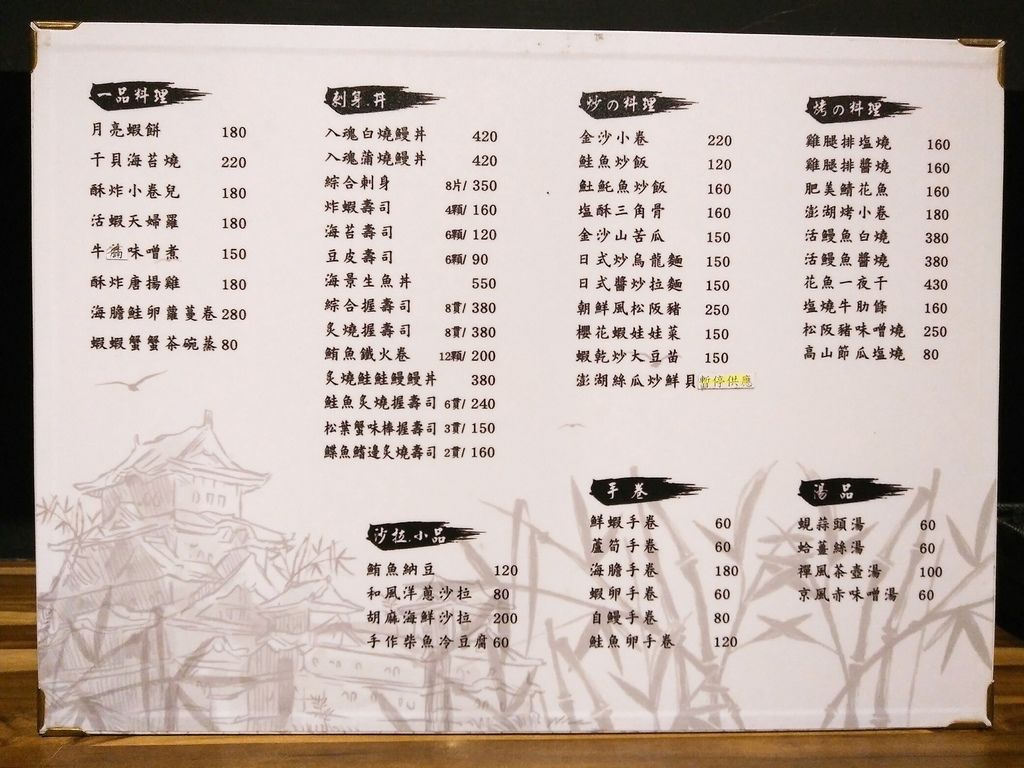 一品料理
月亮蝦餅 180
干貝海苔燒 220
酥炸小卷兒 180
活蝦天婦羅 180
牛筋味噌煮 150
酥炸唐揚雞 180
海膽鮭卵蘿蔓卷 280
蝦蝦蟹蟹茶碗蒸 80
刺身.丼
入魂白燒鰻丼 420
入魂蒲燒鰻丼 420
綜合刺身 8片/ 350
炸蝦壽司 4顆/ 160
海苔壽司 6顆/ 120
豆皮壽司 6顆/ 90
海景生魚丼 550
綜合握壽司 8貫/ 380
炙燒握壽司 8貫/ 380
鮪魚鐵火卷 12顆/ 200
炙燒鮭鮭鰻鰻丼 380
鮭魚炙燒握壽司 6貫/ 240
松葉蟹味棒握壽司 3貫/ 150
鰈魚鰭邊炙燒壽司 2貫/ 160
炒の料理
金沙小卷 220
鮭魚炒飯 120
魠魠魚炒飯 160
塩酥三角骨 160
金沙山苦瓜 150
日式炒烏龍麵 150
日式醬炒拉麵 150
朝鮮風松阪豬 250
櫻花蝦娃娃菜 150
蝦乾炒大豆苗 150
澎湖絲瓜炒鮮貝 暫停供應
烤の料理
雞腿排塩燒 160
雞腿排醬燒 160
肥美鯖花魚 160
澎湖烤小卷 180
活鰻魚白燒 380
活鰻魚醬燒 380
花魚一夜干 430
塩燒牛肋條 160
松阪豬味噌燒 250
高山節瓜塩燒 80
沙拉.小品
鮪魚納豆 120
和風洋蔥沙拉 80
胡麻海鮮沙拉 200
手作柴魚冷豆腐 60
手卷
鮮蝦手卷 60
蘆筍手卷 60
海膽手卷 180
蝦卵手卷 60
白鰻手卷 80
鮭魚卵手卷 120
湯品
蜆蒜頭湯 60
蛤薑絲湯 60
禪風茶壺湯 100
京風赤味噌湯 60